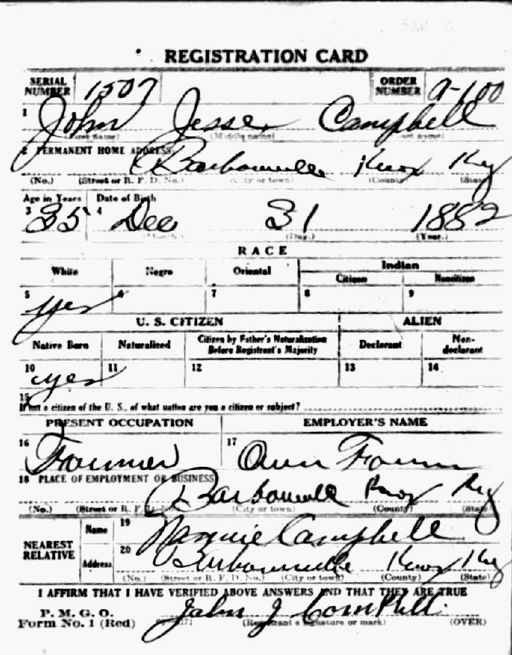 REGISTRATION CARD
SERIAL NUMBER 1507 ORDER NUMBER A-100
1 John Jesse Campbell
(First name) (Middle name) (Last name)
2 PERMANENT HOME ADDRESS: Barbourville Knox Ky
(No.) (Street or R. F. D. No.) (City or town) (County) (State)
Age in Years Date of Birth
3 35 4 Dec 31 1882
(Month.) (Day.) (Year.)
RACE
White Negro Oriental Indian
Citizen Noncitizen
5 yes 6 7 8 9
U. S. CITIZEN ALIEN
Native Born Naturalized Citizen by Father's Naturalization Before Registrant's Majority Declarant Non-declarant
10 yes 11 12 13 14
15 If not a citizen of the U. S., of what nation are you a citizen or subject?
PRESENT OCCUPATION EMPLOYER'S NAME
16 Farmer 17 Own Farm
18 PLACE OF EMPLOYMENT OR BUSINESS
Barbourville Knox Ky
(No.) (Street or R. F. D. No.) (City or town) (County) (State)
NEAREST RELATIVE Name 19 Nannie Campbell
Address 20 Barbourville Knox Ky
(No.) (Street or R. F. D. No.) (City or town) (County) (State)
I AFFIRM THAT I HAVE VERIFIED ABOVE ANSWERS AND THAT THEY ARE TRUE
P. M. G. O.
Form No. 1 (Red) John J Campbell
(Registrant's signature or mark) (OVER)